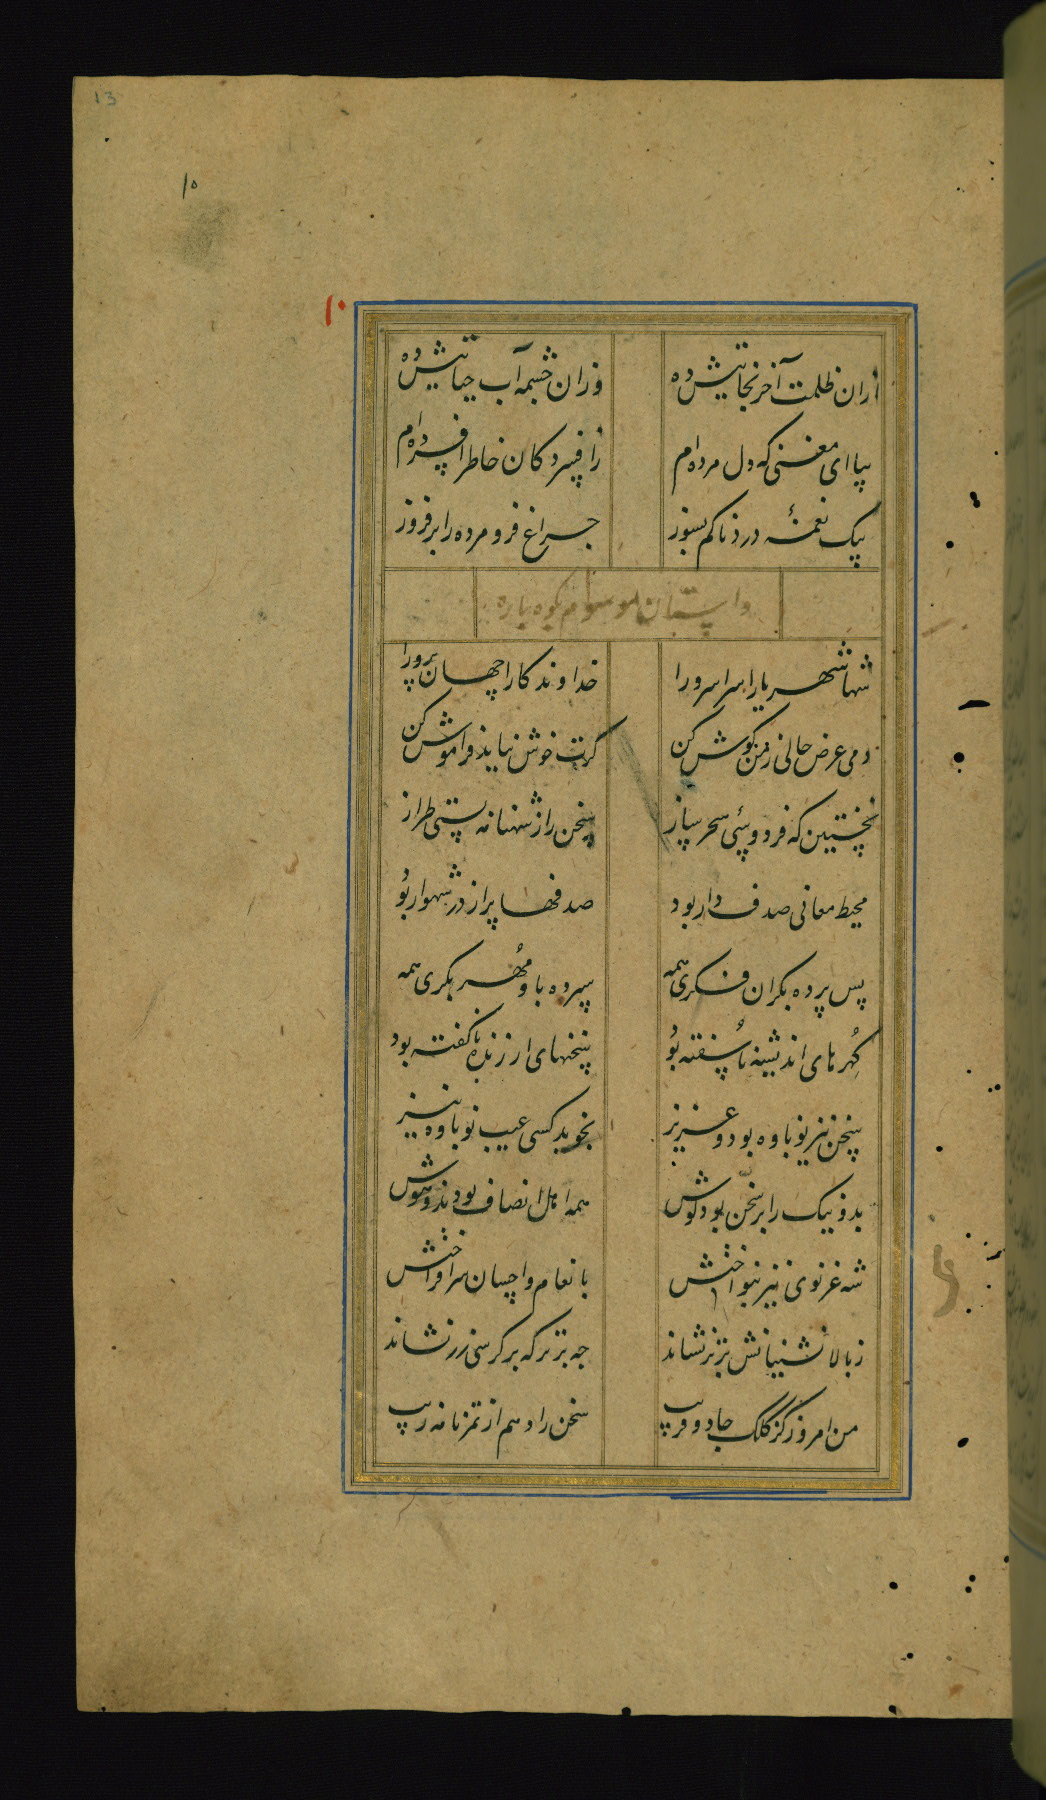 13
۱۰
۱۰
ازان ظلمت آخر نجاتیش ده وزان چشمه آب حیاتیش ده
بیا ای مغنی که دل مرده‌ام ز افسردکان خاطر افسرده‌ام
بیک نغمهٔ دردناکم بسوز چراغ فرو مرده را برفروز
داستان
شها شهریارا سرا سرورا خداوندکارا جهان پرورا
دمی عرض حالی ز من کوش کن کرت خوش نیاید فراموش کن
نخستین که فردوسی سحرساز سخن را ز شهنامه بستی طراز
محیط معانی صدف دار بود صدفها پر از در شهوار بود
پس پرده بکران فکری همه سپرده باو مهر بکری همه
کهرهای اندیشه ناسفته بود سخنهای ارزنده ناکفته بود
سخن نیز نوباوه بود و عزیز نجوید کسی عیب نوباوه نیز
بد و نیک را بر سخن بود کوش همه اهل انصاف بودند و هوش
شه غزنوی نیز بنواختش بانعام و احسان سرافراختش
ز بالانشینانش برتر نشاند چه برتر که بر کرسی زر نشاند
من امروز کز کلک جادو فریب سخن را دهم از تو زیب